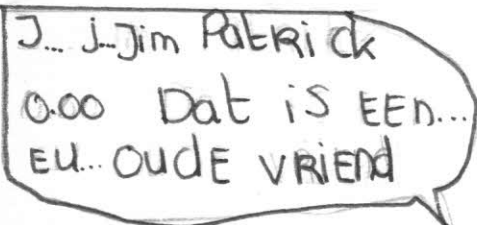 J... j...Jim PatRick
0.00 Dat is EEn...
EU... OUdE VRiEnd